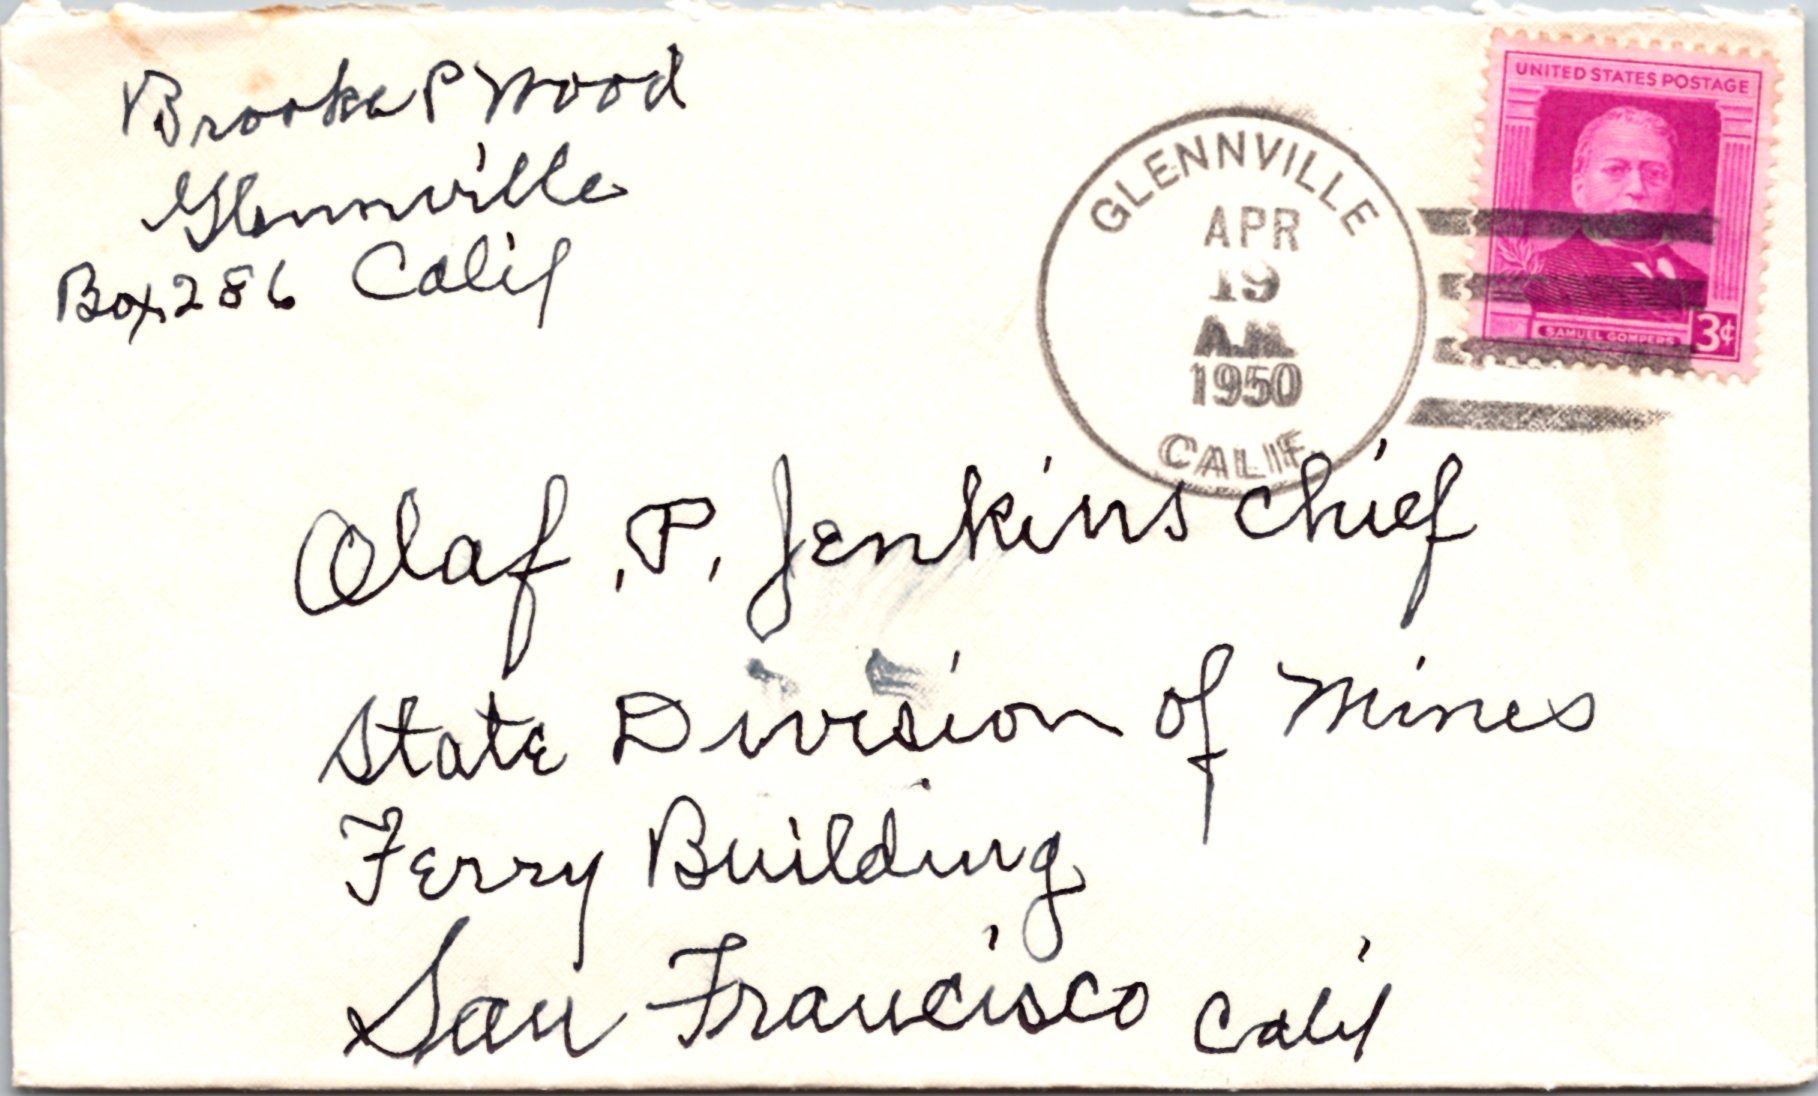 Brooke P Wood
Glennville
Box 286 Calif
GLENNVILLE
APR
19
A.M.
1950
CALIF
UNITED STATES POSTAGE
SAMUEL GOMPERS
3¢
Olaf .P. Jenkins chief
State Division of Mines
Ferry Building
San Francisco Calif